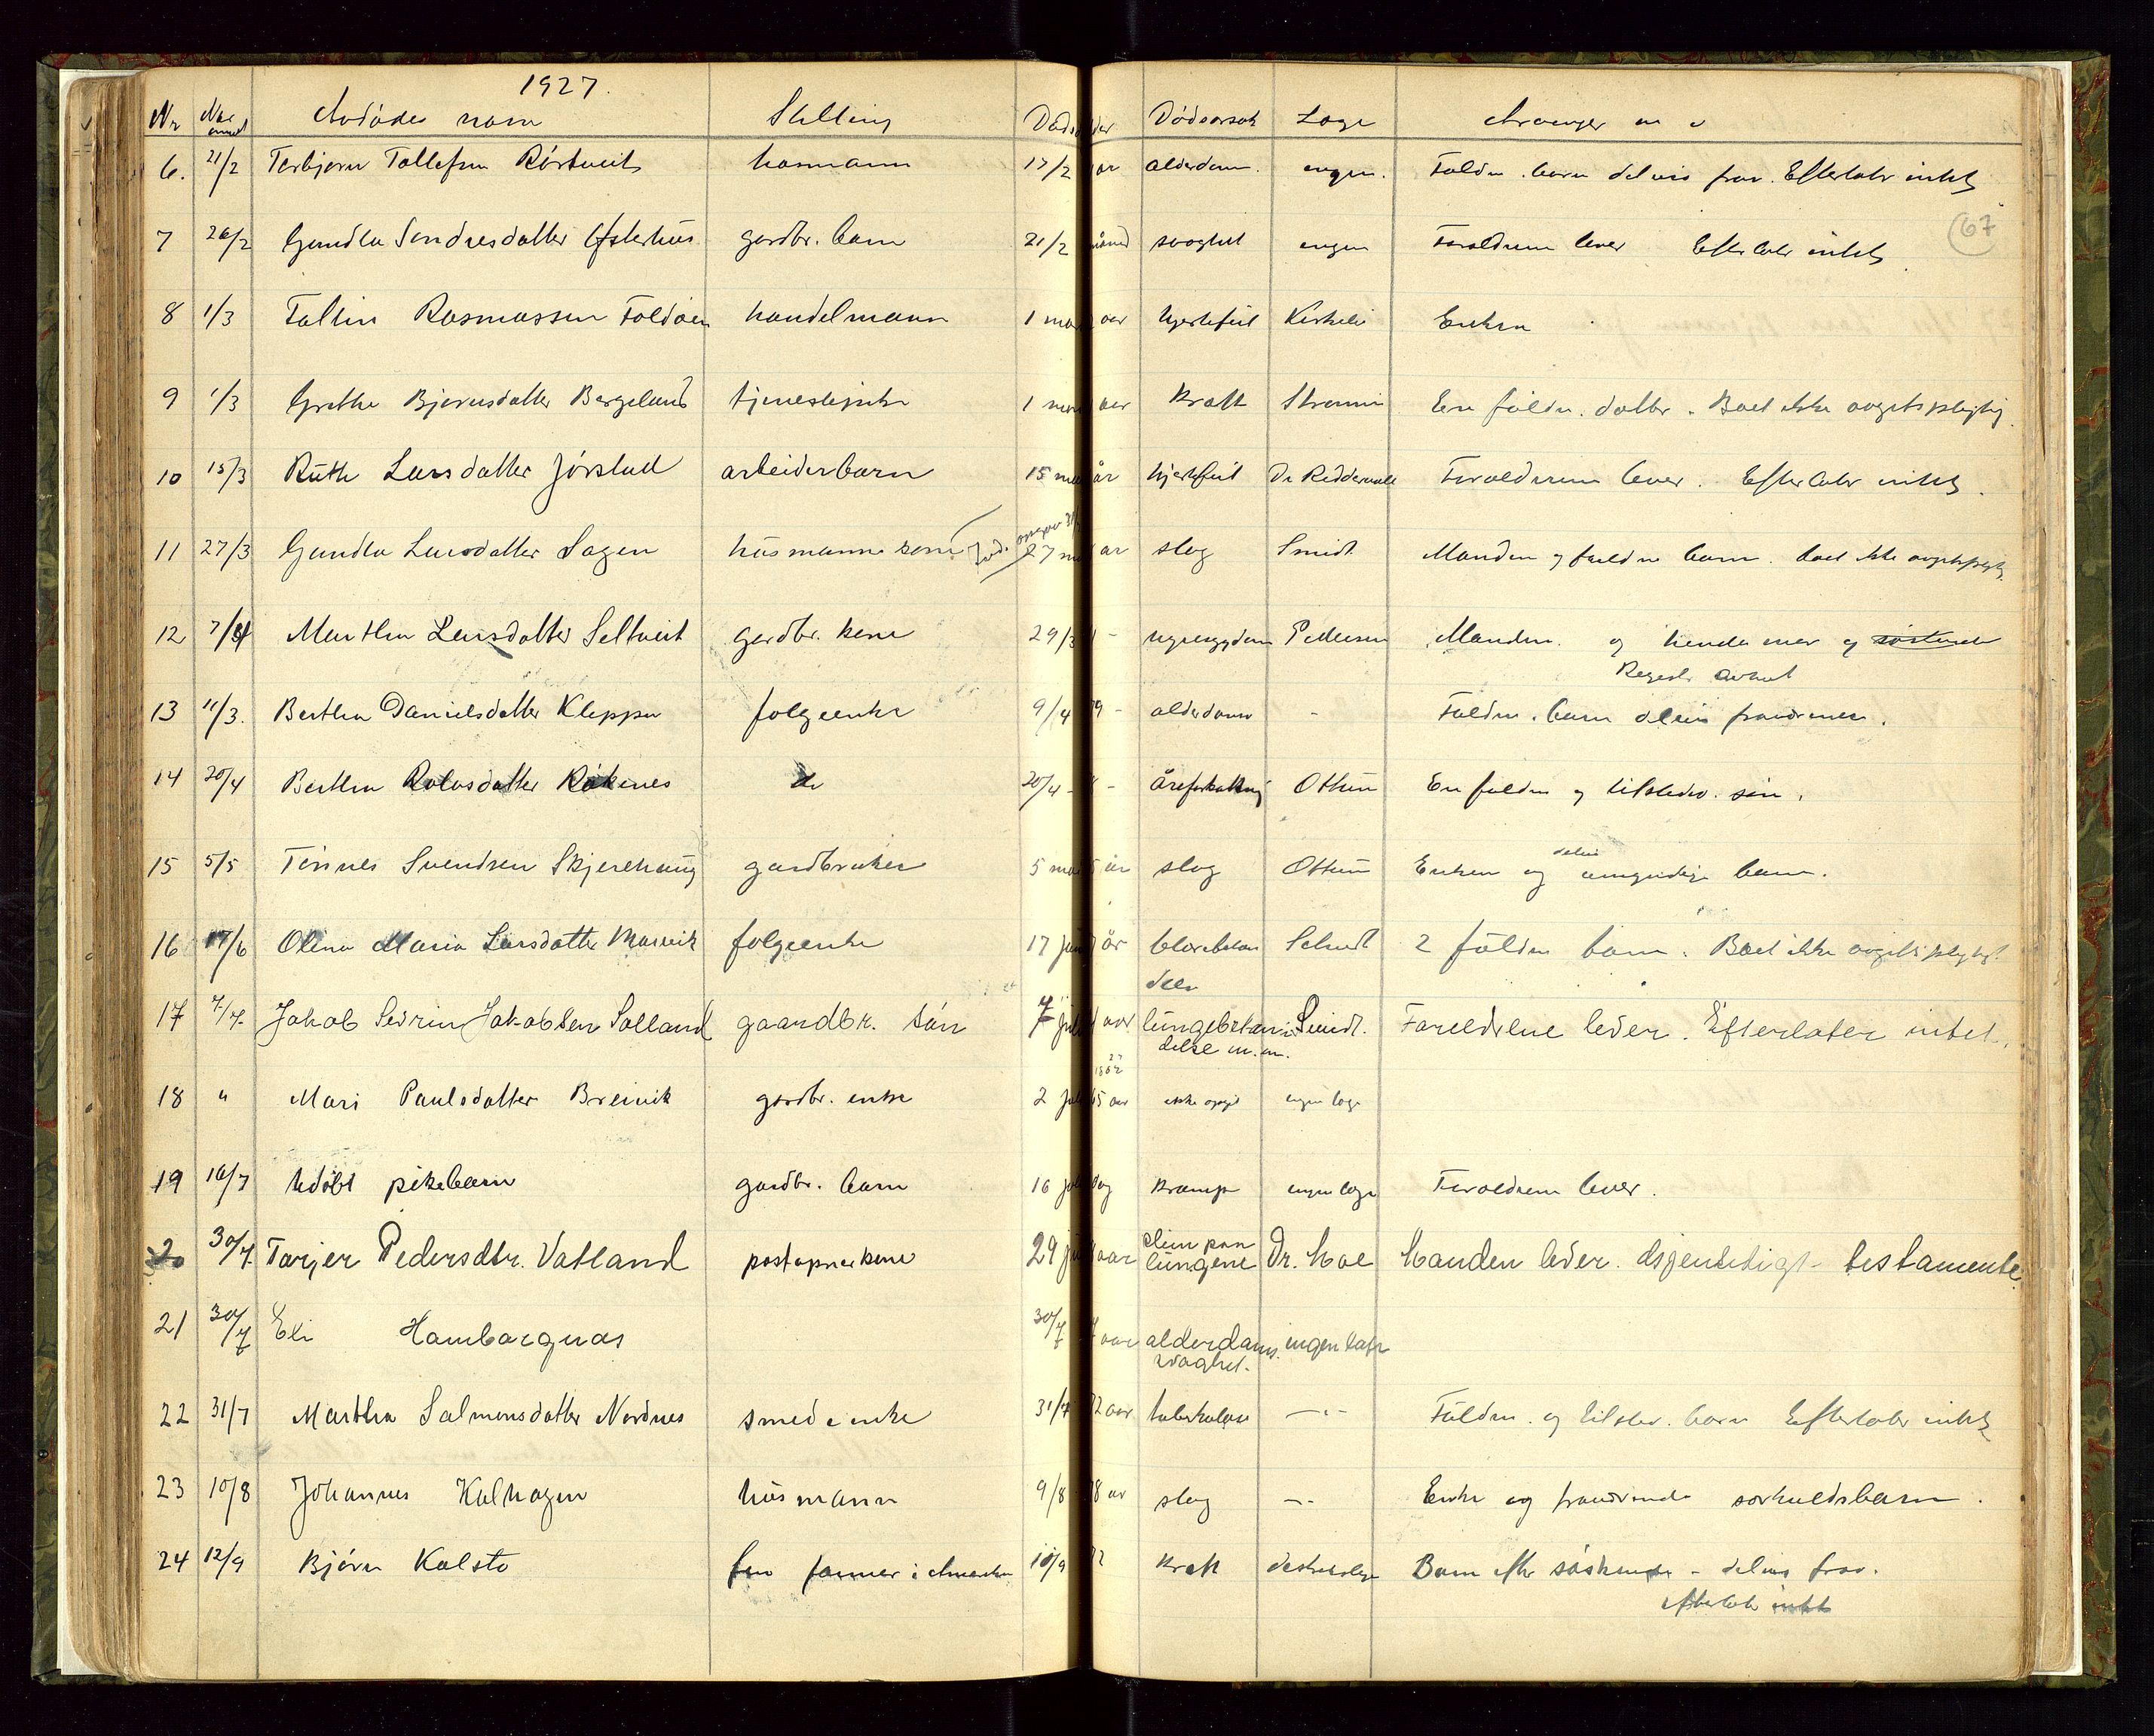 1927.
Nr Naar anmel Avdødes navn Stilling Døds Dødsaarsak Læge Arvinger m v
6. 21/2 Torbjørn Tollefsen Rørtveit husmann 17/2 år alderdom. ingen. Fuldm. barn delvis frav. Efterlater intet
7 26/2 Gundla Sondresdatter Østerhus gardbr. barn 21/2 måned svaghet ingen Forældrene lever Efterlater intet
67
8 1/3 Tallin Rasmussen Foldøen handelmann 1 mars aar hjertefeil Enken
9 1/3 Grethe Bjørnsdatter Bergeland tjenestejente 1 mars aar kræft Strømme En fuldm. datter. Boet ikke avgiftspligtig.
10 15/3 Ruth Larsdatter Jørstad arbeiderbarn 15 mars år hjertefeil Dr Ridderwold Forældrene lever. Efterlater intet.
11 27/3 Gundla Larsdatter Hagen husmanns kone 27 mars år slag Smidt Manden og fuldm barn. Boet ikke avgiftspligtig.
12 7/4 Martha Larsdatter Seltveit gardbr. kone 29/3 - nyresygdom Pettersen Manden og hendes mor og søskende
Begjært avhent
13 11/3. Bertha Danielsdatter Kleppa folgeenke 9/4 79 - alderdom - Fuldm. barn delvis fraværen.
14 20/4 Bertha Rolvsdatter Røkenes do 20/4 - - Åreforkalkning Ottun En fuldm og tilstedev. søn.
15 5/5 Tønnes Svendsen Skjerehaug gardbruker 5 mai år slag Ottun Enken og delvis umyndige barn.
16 17/6 Olena Maria Larsdatter Marvik folgeenke 17 juni år blærebetæn Schmidt 2 fuldm barn. Boet ikke avgiftspligtigt
delse
17 7/7. Jakob Sevrin Jakobsen Solland gaardbr. søn 7 juli aar lungebetæn- Smidt. Foreldrene lever. Efterlater intet.
delse m.m.
18 " Mari Paulsdatter Breivik gardbr. enke 2 juli 65 aar ikke opgit ingen læge
27
1862
19 16/7 Udøbt pikebarn gardbr. barn 16 juli dag krampe ingen læge Forældrene lever.
20 30/7. Torjer Pedersdtr. Vatland postaapner kone 29 juli aar slim paa lungene Dr. Moe Manden lever. Gjensidigt testamente
21 30/7 Eli Hambargnas 30/7 aar alderdoms svaghet. ingen læge
22 31/7 Martha Salmonsdatter Nordnes smed enke 31/7 72 aar tuberkulose -"- Fuldm. og tilstev. barn Efterlater intet
23 10/8 Johannes Kalhagen husmann 9/8 - 78 år slag -"- Enke og fraværende særkuldsbarn.
24 12/9 Bjørn Kolstø fhv farmer i Amerika 10/9 72 kræft Barn efter søskende - delvis frav.
efterlater intet